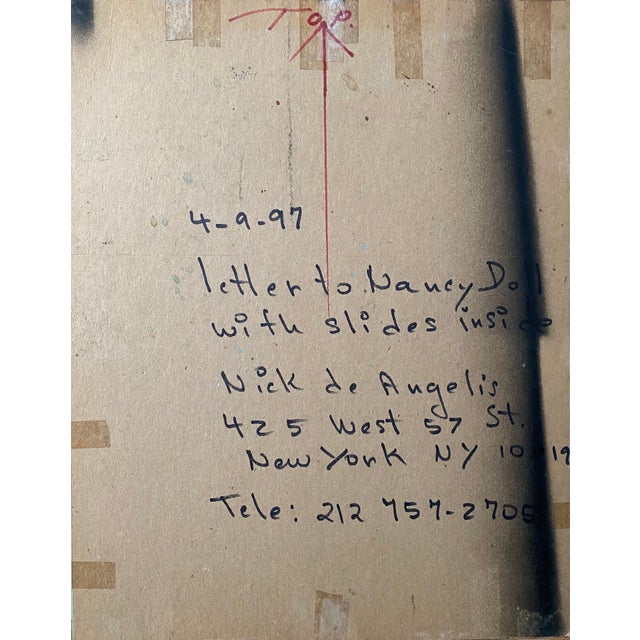 TOP.
4-9-97
letter to Nancy Doll
with slides inside
Nick de Angelis
425 West 57 St.
New York NY 10019
Tele: 212 757-2705